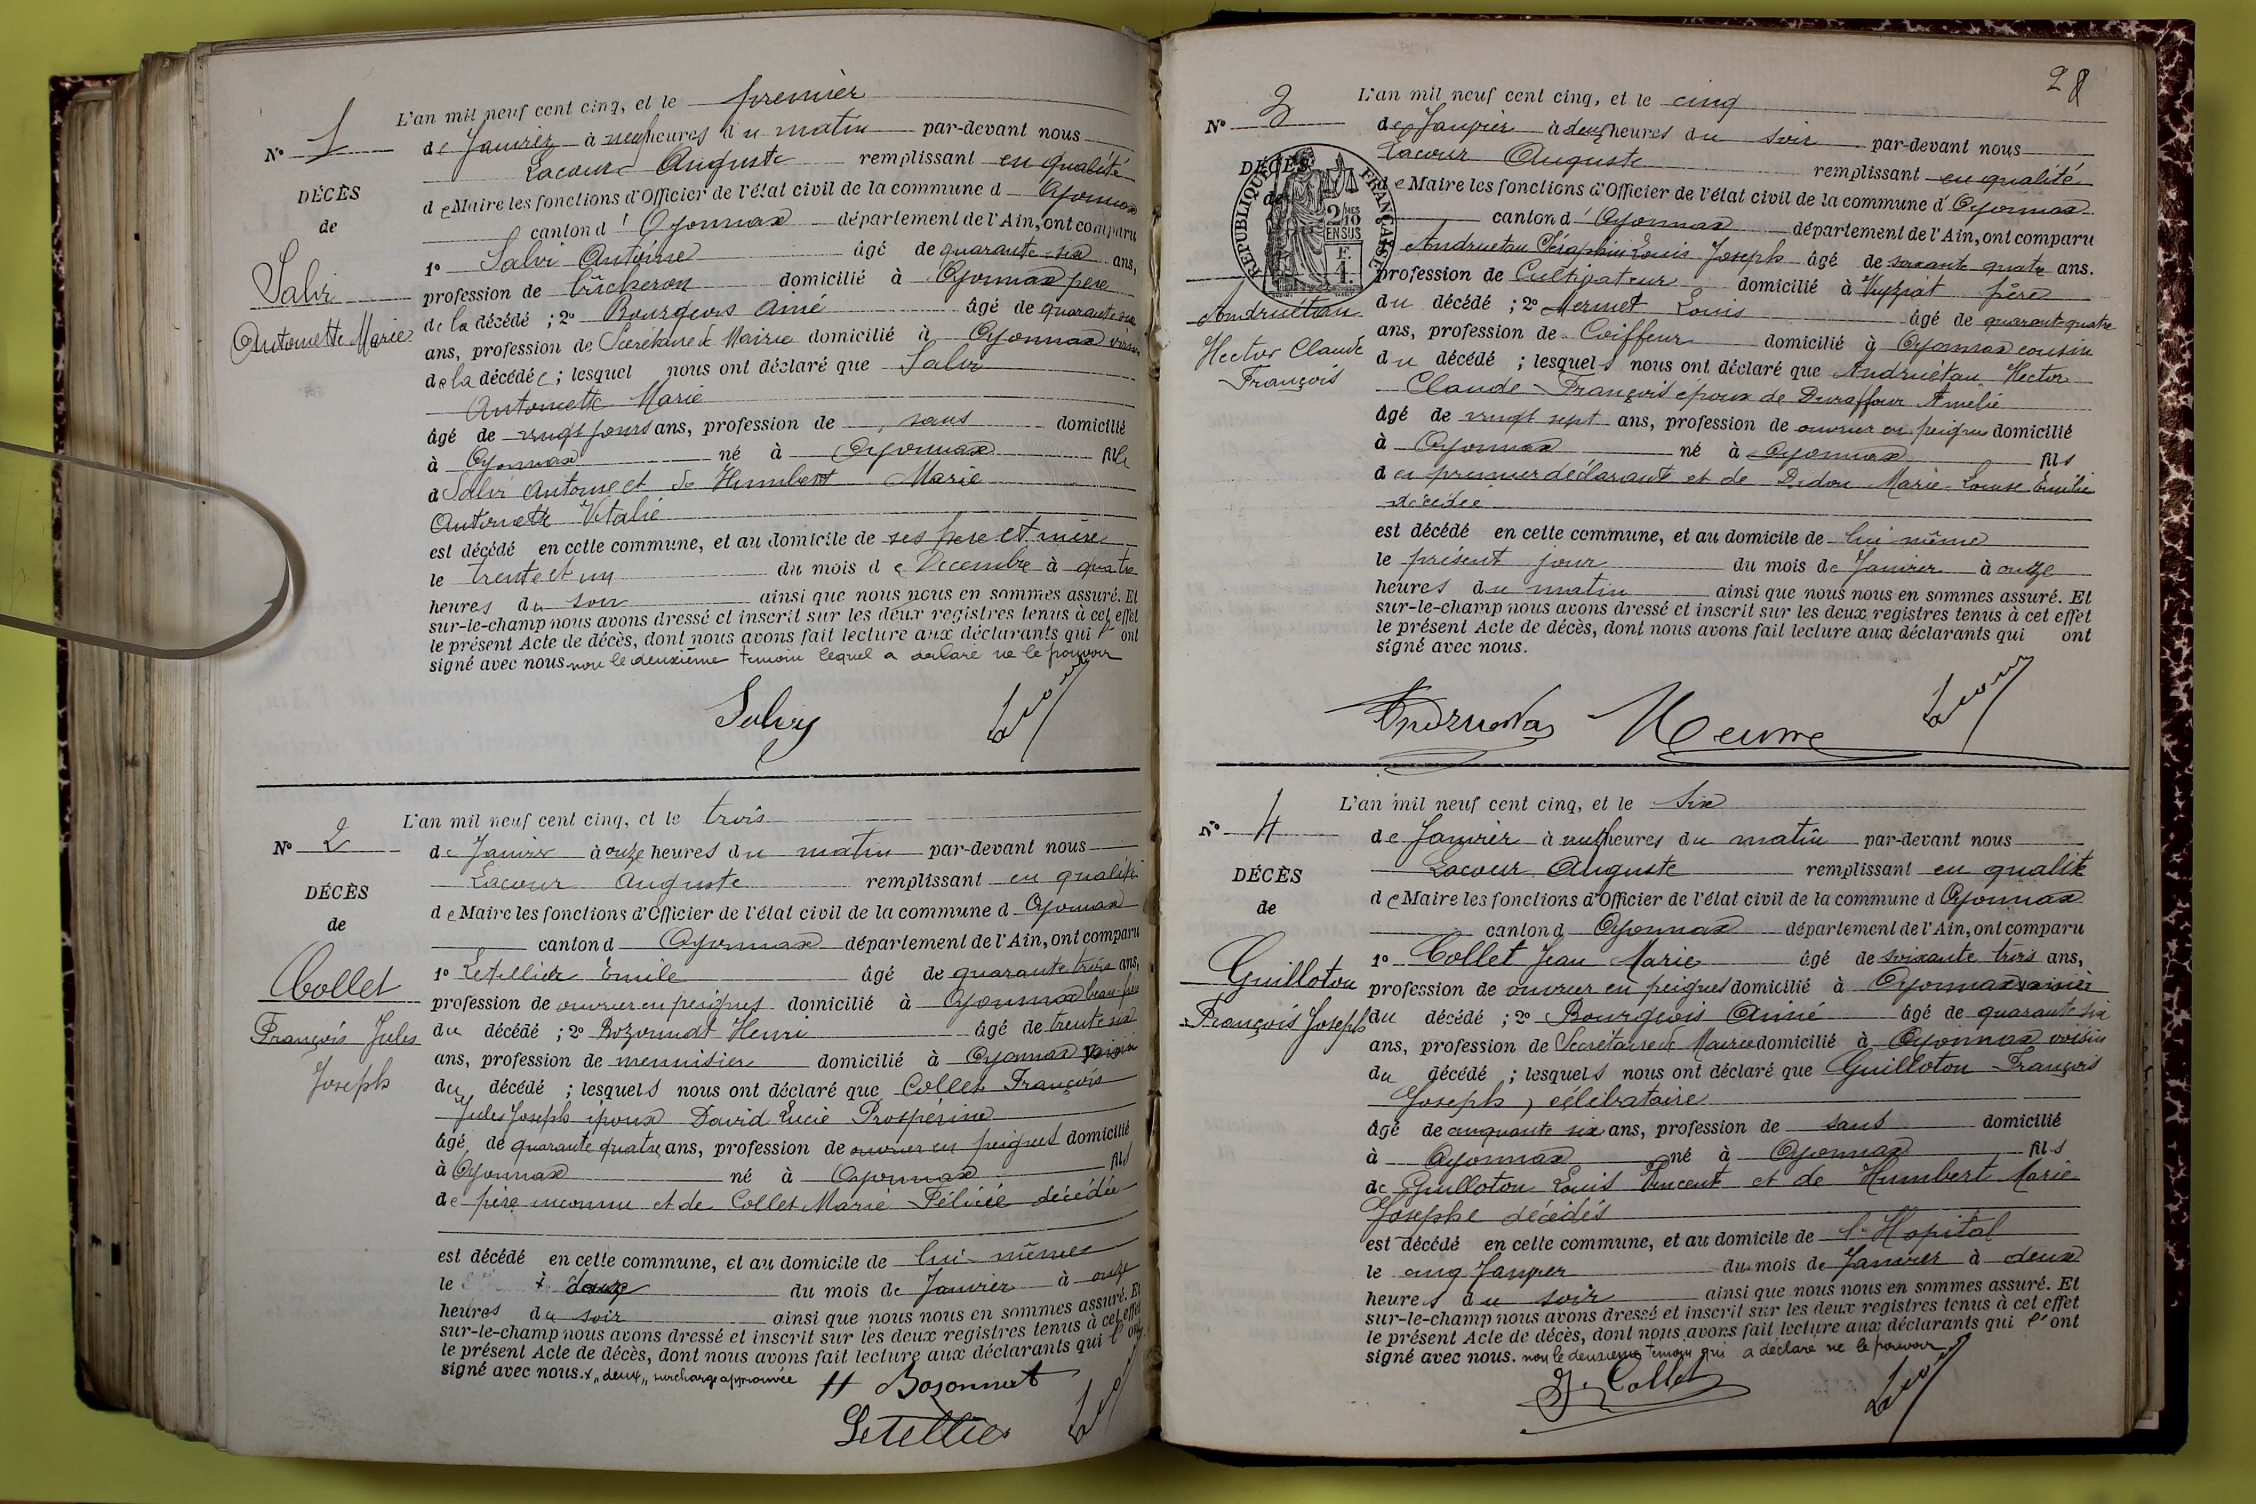 L'an mil neuf cent cinq, et le premier
N° 1
de Janvier à neuf heures du matin par-devant nous
Lacour Auguste remplissant en qualité
DÉCÈS
de Maire les fonctions d'Officier de l'état civil de la commune d Oyonnax
de
canton d' Oyonnax département de l'Ain, ont comparu
1° Salvi Antoine âgé de quarante-six ans,
Salvi
profession de bûcheron domicilié à Oyonnax père
Antoinette Marie
de la décédé ; 2° Bourgeois Aimé âgé de quarante six
ans, profession de Secrétaire de Mairie domicilié à Oyonnax voisin
de la décédée ; lesquel nous ont déclaré que Salvi
Antoinette Marie
âgé de vingt jours ans, profession de sans domicilié
à Oyonnax né à Oyonnax fille
d Salvi Antoine et de Humbert Marie
Antoinette Vitalie
est décédé en cette commune, et au domicile de ses père et mère
le trente et un du mois de Décembre à quatre
heures du soir ainsi que nous nous en sommes assuré. Et
sur-le-champ nous avons dressé et inscrit sur les deux registres tenus à cet effet
le présent Acte de décès, dont nous avons fait lecture aux déclarants qui l' ont
signé avec nous. non le deuxième témoin lequel a déclaré ne le pouvoir
Salvy Lacour
L'an mil neuf cent cinq, et le trois
N° 2
de Janvier à onze heures du matin par-devant nous
Lacour Auguste remplissant en qualité
DÉCÈS
de Maire les fonctions d'Officier de l'état civil de la commune d Oyonnax
de
canton d Oyonnax département de l'Ain, ont comparu
1° Letellier Emile âgé de quarante trois ans,
Collet
profession de ouvrier en peignes domicilié à Oyonnax beau-père
François Jules
du décédé ; 2° Bozonnat Henri âgé de trente six
ans, profession de menuisier domicilié à Oyonnax voisin
Joseph
du décédé ; lesquels nous ont déclaré que Collet François
Jules Joseph époux David Lucie Prospérine
âgé de quarante quatre ans, profession de ouvrier en peignes domicilié
à Oyonnax né à Oyonnax fils
de père inconnu et de Collet Marie Félicie décédée
est décédé en cette commune, et au domicile de lui-même
le du mois de Janvier à onze
heures du soir ainsi que nous nous en sommes assuré. Et
sur-le-champ nous avons dressé et inscrit sur les deux registres tenus à cet effet
le présent Acte de décès, dont nous avons fait lecture aux déclarants qui l' ont
signé avec nous. x "deux" surcharge approuvée
H Bozonnat
Letellier Lacour
28
L'an mil neuf cent cinq, et le cinq
N° 3
de Janvier à deux heures du soir par-devant nous
Lacour Auguste remplissant en qualité
DÉCÈS
de Maire les fonctions d'Officier de l'état civil de la commune d' Oyonnax
de
RÉPUBLIQUE FRANÇAISE
2/10 EN SUS
F. 1.
canton d' Oyonnax département de l'Ain, ont comparu
Andruétan Séraphin Louis Joseph âgé de soixante quatre ans.
profession de Cultivateur domicilié à Veyziat père
Andruétan
du décédé ; 2° Mermet Louis âgé de quarante quatre
Hector Claude
ans, profession de Coiffeur domicilié à Oyonnax cousin
François
du décédé ; lesquels nous ont déclaré que Andruétan Hector
Claude François époux de Duraffour Amélie
âgé de vingt sept ans, profession de ouvrier en peignes domicilié
à Oyonnax né à Oyonnax fils
du premier déclarant et de Marie Louise Emilie
décédée
est décédé en cette commune, et au domicile de lui même
le présent jour du mois de Janvier à onze
heures du matin ainsi que nous nous en sommes assuré. Et
sur-le-champ nous avons dressé et inscrit sur les deux registres tenus à cet effet
le présent Acte de décès, dont nous avons fait lecture aux déclarants qui ont
signé avec nous.
Lacour
L'an mil neuf cent cinq, et le six
N° 4
de Janvier à neuf heures du matin par-devant nous
Lacour Auguste remplissant en qualité
DÉCÈS
de Maire les fonctions d'Officier de l'état civil de la commune d Oyonnax
de
canton d Oyonnax département de l'Ain, ont comparu
1° Collet Jean Marie âgé de soixante trois ans,
Guilloton
profession de ouvrier en peignes domicilié à Oyonnax voisin
François Joseph
du décédé ; 2° Bourgeois Aimé âgé de quarante six
ans, profession de Secrétaire de Mairie domicilié à Oyonnax voisin
du décédé ; lesquels nous ont déclaré que Guilloton François
Joseph, célibataire
âgé de cinquante six ans, profession de sans domicilié
à Oyonnax né à Oyonnax fils
de Guilloton Louis Vincent et de Humbert Marie
Josephe décédés
est décédé en cette commune, et au domicile de l'Hopital
le cinq Janvier du mois de Janvier à deux
heures du soir ainsi que nous nous en sommes assuré. Et
sur-le-champ nous avons dressé et inscrit sur les deux registres tenus à cet effet
le présent Acte de décès, dont nous avons fait lecture aux déclarants qui l' ont
signé avec nous. non le deuxième témoin qui a déclaré ne le pouvoir
Collet Lacour